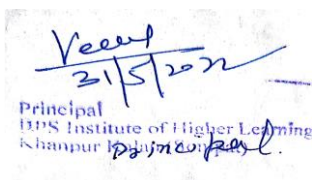 31/5/2022
Principal
DPS Institute of Higher Learning
Khanpur
Principal.